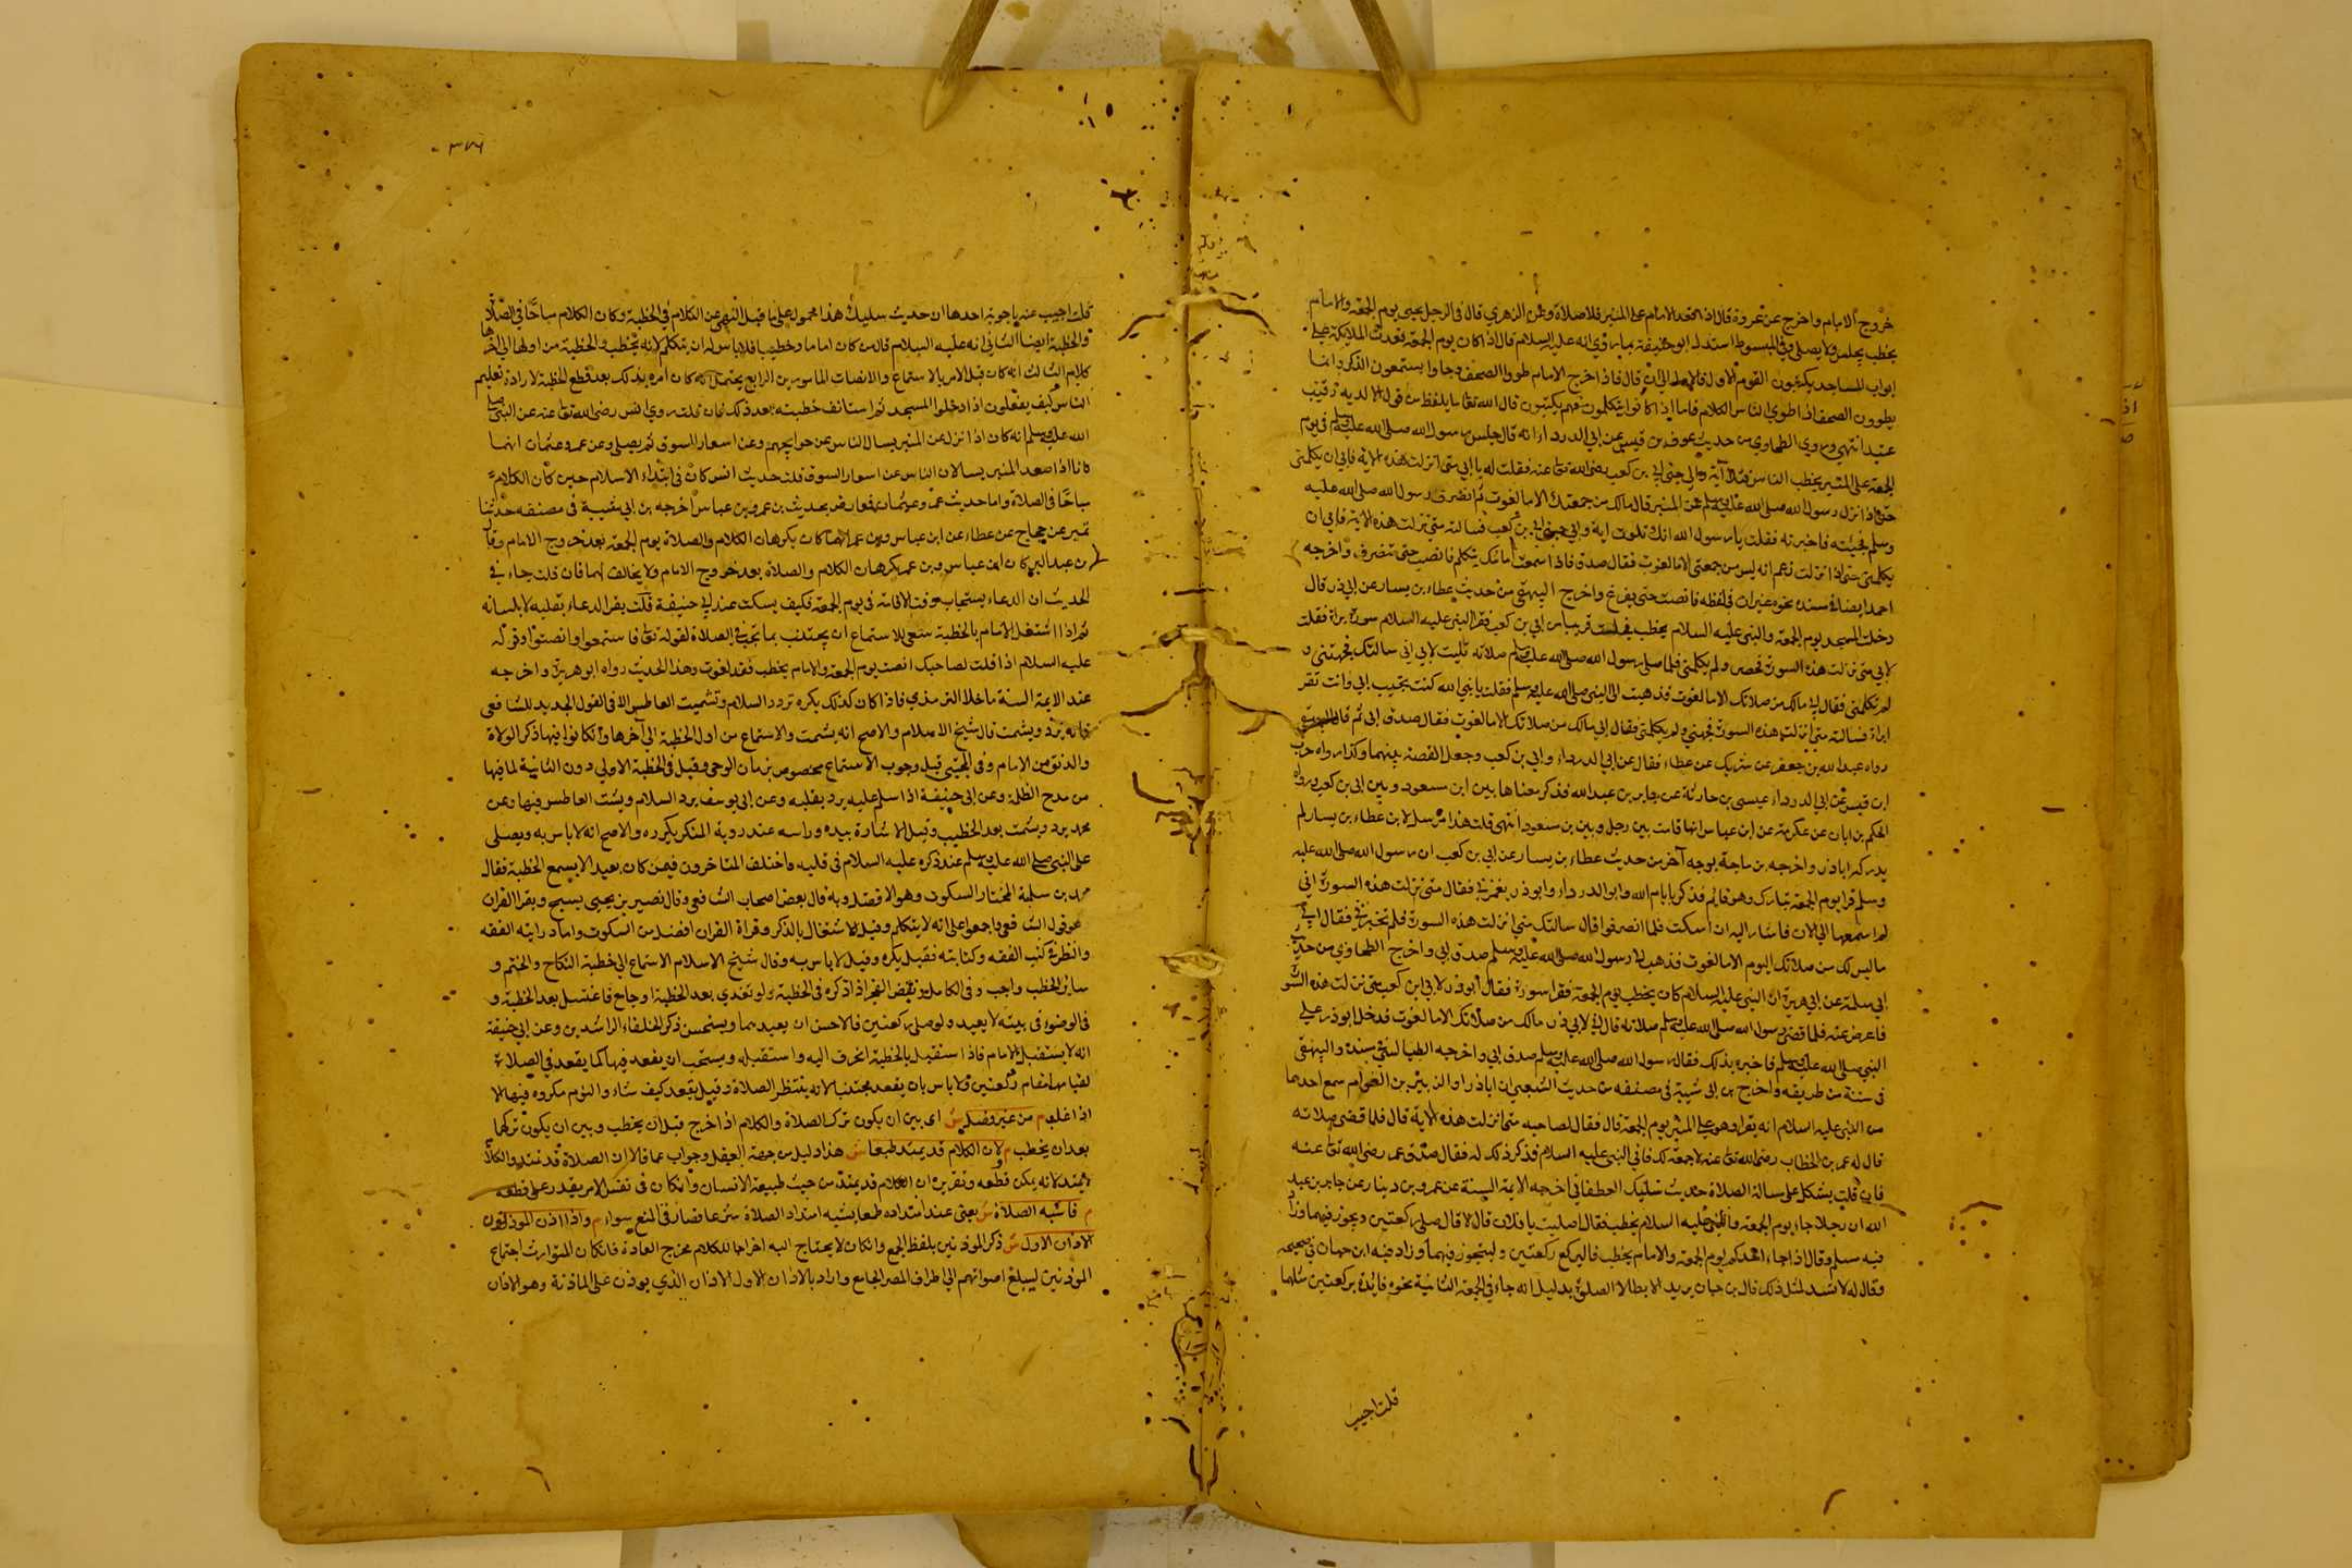 خروج الامام واخرج عن عروة قال اذا قعد الامام على المنبر فلا صلاة وعن الزهري قال في الرجل يجيء يوم الجمعة والامام
يخطب يجلس ولا يصلي وفي المبسوط استدل ابو حنيفة بما روي انه عليه السلام قال اذا كان يوم الجمعة قعدت الملائكة على
ابواب المساجد يكتبون القوم الاول فالاول الى ان قال فاذا خرج الامام طووا الصحف وجاوا يستمعون الذكر وانما
يطوون الصحف اذا طوي الناس الكلام فاما اذا كانوا يتكلمون فهم يكتبون قال الله تعالى ما يلفظ من قول الا لديه رقيب
عتيد انتهى وروي الطحاوي من حديث عوف بن قيس عن ابي الدرداء انه قال جلس رسول الله صلى الله عليه وسلم في يوم
الجمعة على المنبر يخطب الناس فتلا آية والى جنبي ابي بن كعب رضي الله تعالى عنه فقلت له يا ابي متى انزلت هذه الاية فابى ان يكلمني
حتى اذا نزل رسول الله صلى الله عليه وسلم عن المنبر قال مالك من جمعتك الا ما لغوت ثم انصرف رسول الله صلى الله عليه
وسلم فجئته فاخبرته فقلت يا رسول الله انك تلوت اية والى جنبي ابي بن كعب فسالته متى نزلت هذه الاية فابى ان
يكلمني حتى اذا نزلت زعم انه ليس من جمعتي الا ما لغوت فقال صدق فاذا سمعت امامك يتكلم فانصت حتى تنصرف واخرجه
احمد ايضا في مسنده نحوه غير ان في لفظه فانصت حتى يفرغ واخرج البيهقي من حديث عطاء بن يسار عن ابي ذر قال
دخلت المسجد يوم الجمعة والنبي عليه السلام يخطب فجلست قريبا من ابي بن كعب فقرا النبي عليه السلام سورة براة فقلت
لابي متى نزلت هذه السورة فحصر ولم يكلمني فلما صلى رسول الله صلى الله عليه وسلم صلاته قلت لابي اني سالتك فجهتني و
لم تكلمني فقال ابي مالك من صلاتك الا ما لغوت فذهبت الى النبي صلى الله عليه وسلم فقلت يا نبي الله كنت بجنب ابي وانت تقرا
براة فسالته متى انزلت هذه السورة فجهني ولم يكلمني فقال ابي مالك من صلاتك الا ما لغوت فقال صدق ابي ثم قال البيهقي
رواه عبد الله بن جعفر عن شريك عن عطاء فقال عن ابي الدرداء وابي بن كعب وجعل القصة بينهما وكذا رواه حرب
ابن قيس عن ابي الدرداء عيسى بن حارثة عن جابر بن عبد الله فذكر معناها بين ابن مسعود وبين ابي بن كعب ورواه
الحكم بن ابان عن عكرمة عن ابن عباس انها قامت بين رجل وبين بن مسعود انتهى قلت هذا مرسل لان عطاء بن يسار لم
يدرك ابا ذر واخرجه بن ماجة بوجه آخر من حديث عطاء بن يسار عن ابي بن كعب ان رسول الله صلى الله عليه
وسلم قرا يوم الجمعة تبارك وهو قائم فذكر بايام الله وابو الدرداء وابو ذر يغمزني فقال متى نزلت هذه السورة اني
لم اسمعها الى الان فاشار اليه ان اسكت فلما انصرفوا قال سالتك متى انزلت هذه السورة فلم تخبرني فقال ابي
ما ليس لك من صلاتك اليوم الا ما لغوت فذهب الى رسول الله صلى الله عليه وسلم صدق ابي واخرج الطحاوي من حديث
ابي سلمة عن ابي هريرة ان النبي عليه السلام كان يخطب يوم الجمعة فقرا سورة فقال ابو ذر لابي بن كعب متى نزلت هذه السورة
فاعرض عنه فلما قضى رسول الله صلى الله عليه وسلم صلاته قال ابي لابي ذر مالك من صلاتك الا ما لغوت فدخل ابو ذر على
النبي صلى الله عليه وسلم فاخبره بذلك فقال رسول الله صلى الله عليه وسلم صدق ابي واخرجه الطيالسي في مسنده والبيهقي
في سننه من طريقه واخرج بن ابي شيبة في مصنفه من حديث الشعبي ان ابا ذر او الزبير بن العوام سمع احدهما
من النبي عليه السلام انه يقرا وهو على المنبر يوم الجمعة قال فقال لصاحبه متى انزلت هذه الاية قال فلما قضى صلاته
قال له عمر بن الخطاب رضي الله تعالى عنه لا جمعة لك فاتى النبي عليه السلام فذكر ذلك له فقال صدق عمر رضي الله تعالى عنه
فان قلت يشكل على مسالة الصلاة حديث سليك الغطفاني اخرجه الايمة الستة عن عمرو بن دينار عن جابر بن عبد
الله ان رجلا جاء يوم الجمعة والنبي عليه السلام يخطب فقال اصليت يا فلان قال لا قال صل ركعتين وتجوز فيهما وزاد
فيه مسلم وقال اذا جاء احدكم يوم الجمعة والامام يخطب فاليركع ركعتين وليتجوز فيهما وزاد فيه ابن حبان في صحيحه
وقال له لا تعد لمثل ذلك قال بن حبان يريد الابطال الصلاة بدليل انه جاء في الجمعة الثانية نحوه فامره بركعتين مثلها
قلت اجيب
٣٧٦
قلت اجيب عنه باجوبة احدها ان حديث سليك هذا محمول على ما قبل النهي عن الكلام في الخطبة وكان الكلام مباحا في الصلاة
والخطبة ايضا الثاني انه عليه السلام قال من كان اماما وخطيبا فلا باس له ان يتكلم لانه يخطب والخطبة من اولها الى اخرها
كلام الثالث انه كان قبل الامر بالاستماع والانصات المامور بن الرابع يحتمل انه كان امره بذلك بعد قطع الخطبة لارادة تعليم
الناس كيف يفعلون اذا دخلوا المسجد ثم استانف خطبته بعد ذلك فان قلت روي انس رضي الله تعالى عنه عن النبي صلى
الله عليه وسلم انه كان اذا نزل عن المنبر يسال الناس عن حوايجهم وعن اسعار السوق ثم يصلي وعن عمر وعثمان انهما
كانا اذا صعد المنبر يسالان الناس عن اسعار السوق قلت حديث انس كان في ابتداء الاسلام حين كان الكلام
مباحا في الصلاة واما حديث عمر وعثمان فعارض بحديث بن عمر وبن عباس اخرجه بن ابي شيبة في مصنفه حدثنا
نمير عن حجاج عن عطاء عن ابن عباس وبن عمر انهما كان يكرهان الكلام والصلاة يوم الجمعة بعد خروج الامام وقال
بن عبد البر كان ابن عباس وبن عمر يكرهان الكلام والصلاة بعد خروج الامام ولا مخالف لهما فان قلت جاء في
الحديث ان الدعاء يستجاب وقت الاقامة في يوم الجمعة فكيف يسكت عند ابي حنيفة قلت يقرا الدعاء بقلبه لا بلسانه
ثم اذا اشتغل الامام بالخطبة ينبغي للاستماع ان يجتنب بما يجتنب في الصلاة لقوله تعالى فاستمعوا وانصتوا وقوله
عليه السلام اذا قلت لصاحبك انصت يوم الجمعة والامام يخطب فقد لغوت وهذا الحديث رواه ابو هريرة واخرجه
عند الايمة الستة ما خلا الترمذي فاذا كان كذلك يكره ترد السلام وتشميت العاطس الا في القول الجديد للشافعي
فانه يرد ويشمت قال شيخ الاسلام والاصح انه يشمت والاستماع من اول الخطبة الى آخرها وان كانوا فيها ذكر الولاة
والدنو من الامام وفي المجتبى قيل وجوب الاستماع مخصوص بزمان الوحي وقيل في الخطبة الاولى دون الثانية لما فيها
من مدح الظلمة وعن ابي حنيفة اذا سلم عليه يرد بقلبه وعن ابي يوسف يرد السلام ويشمت العاطس فيها وعن
محمد يرد ويشمت بعد الخطيب وقيل الاشارة بيده وراسه عند روية المنكر يكره والاصح انه لا باس به ويصلى
على النبي صلى الله عليه وسلم عند ذكره عليه السلام في قلبه واختلف المتاخرون فيمن كان بعيد الا يسمع الخطبة فقال
محمد بن سلمة المختار السكوت وهو الافضل وبه قال بعض اصحاب الشافعي وقال نصير بن يحيى يسبح ويقرا القران
هو قول الشافعي واجمعوا على انه لا يتكلم وقيل الاشتغال بالذكر وقراة القران افضل من السكوت واما دراية الفقه
والنظر في كتب الفقه وكتابته فقيل يكره وقيل لا باس به وقال شيخ الاسلام الاستماع الى خطبة النكاح والختم و
سائر الخطب واجب وفي الكامل ويقضى الفجر اذا ذكره في الخطبة ولو تغدى بعد الخطبة او جامع فاغتسل بعد الخطبة و
فالوضوء في بيته لا يعيد ولو صلى ركعتين فالاحسن ان يعيدهما ويستحسن ذكر الخلفاء الراشدين وعن ابي حنيفة
انه لا يستقبل الامام فاذا استقبل بالخطبة انحرف اليه واستقبله ويستحب ان يقعد فيها كما يقعد في الصلاة
لقيامها مقام ركعتين ولا باس بان يقعد مجتنبا لانه ينتظر الصلاة وقيل يقعد كيف شاء والنوم مكروه فيها الا
اذا غلب م من غير فصل ش اى بين ان يكون ترك الصلاة والكلام اذا خرج قبل ان يخطب وبين ان يكون تركها
بعد ان يخطب م ولان الكلام قد يمتد طبعا ش هذا دليل من جهة العقل وجواب عما قالا ان الصلاة قد تمتد والكلام
لا يمتد لانه يمكن قطعه وتقريره ان الكلام قد يمتد من حيث طبيعة الانسان وان كان في نفس الامر يقدر على قطعه
م فاشبه الصلاة ش يعنى عند امتداده طبعا يشبه امتداد الصلاة شرعا فصار في المنع سواء م واذا اذن الموذنون
الاذان الاول ش ذكر الموذنين بلفظ الجمع وان كان لا يحتاج اليه اخراجا للكلام مخرج العادة فان كان المتوارث اجتماع
الموذنين ليبلغ اصواتهم الى اطراف المصر الجامع واراد بالاذان الاول الاذان الذي يوذن على الماذنة وهو الاذان